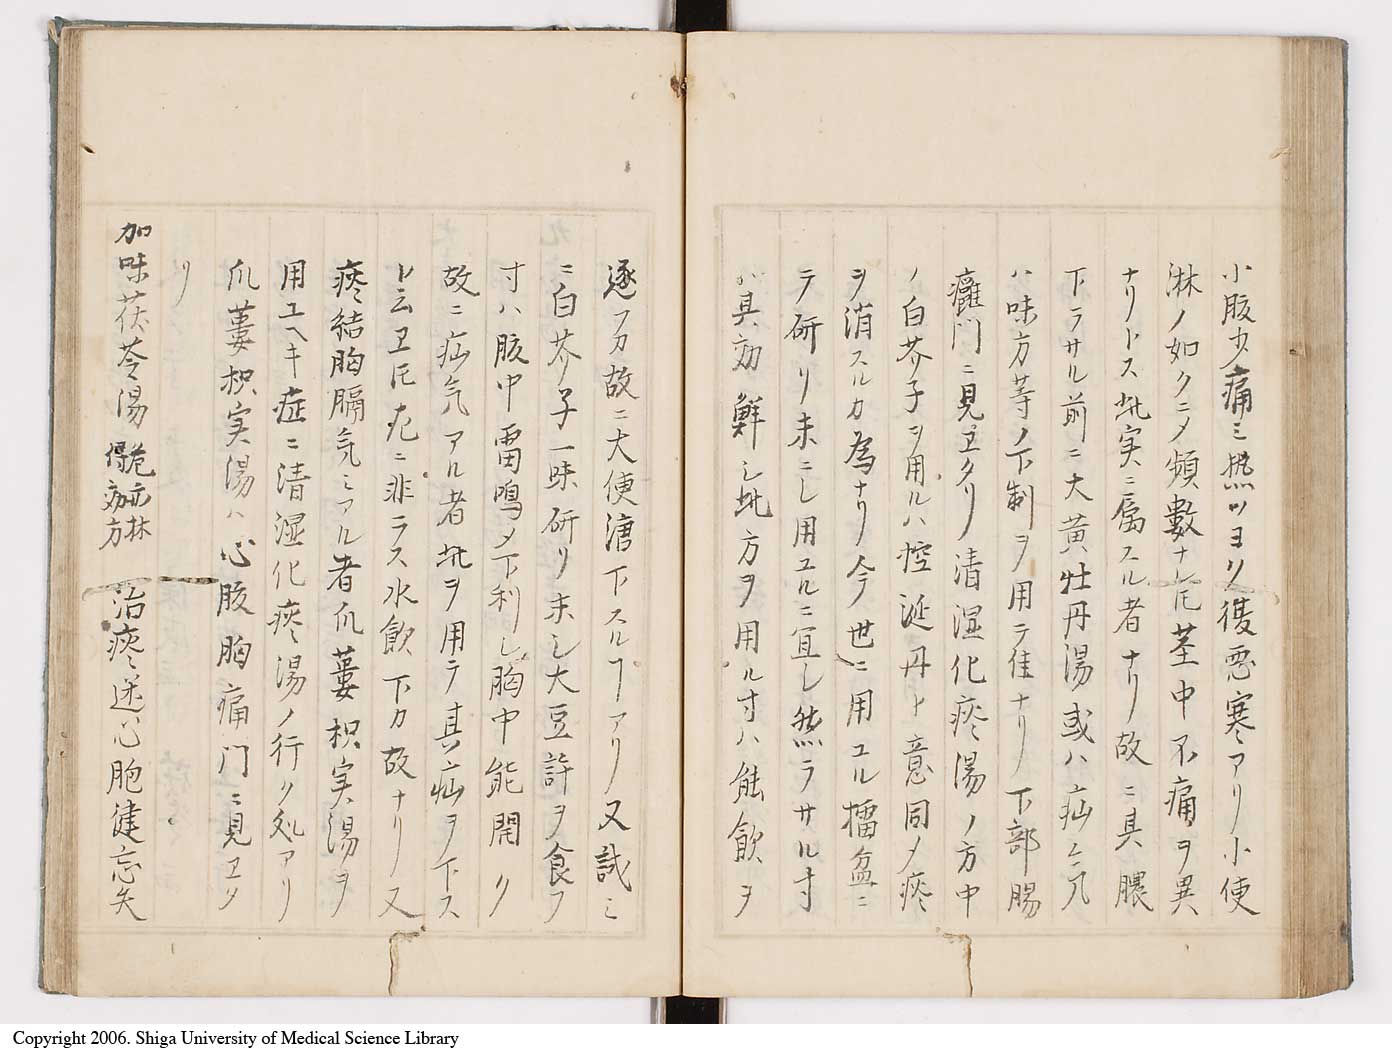 小腹少痛ミ撚ツヨリ後悪寒アリ小使
淋ノ如クニ〆頻數ナレ𪜈茎中不痛ヲ異
ナリトス此実ニ属スル者ナリ故ニ其膿
下ラサル前ニ大黄牡丹湯或ハ疝气
ハ味方等ノ下制ヲ用テ佳ナリ下部腸
癰門ニ見ヱタリ清湿化痰湯ノ方中
ノ白芥子ヲ用ルハ控涎丹ト意同〆痰
ヲ消スルカ為ナリ今世ニ用ユル擂盆ニ
テ研リ末ニシ用ユルニ宜シ然ラサル寸
ハ其効鮮シ此方ヲ用ル寸ハ能飲ヲ
逐フカ故ニ大便溏下スルヿアリ又試ミ
ニ白芥子一味研リ末シ大豆許ヲ食フ
寸ハ腹中雷鳴〆下利シ胸中能開ク
故ニ疝气アル者此ヲ用テ其疝ヲ下ス
ト云ヱ𪜈疝ニ非ラス水飲下カ故ナリ又
痰結胸膈気ミアル者瓜蔞枳実湯ヲ
用ユヘキ症ニ清湿化痰湯ノ行ク処アリ
瓜蔞枳実湯ハ心腹胸痛門ニ見ヱタ
リ
加味茯苓湯 危亦林
得効方
治痰迷心胞健忘失
Copyright 2006. Shiga University of Medical Science Library